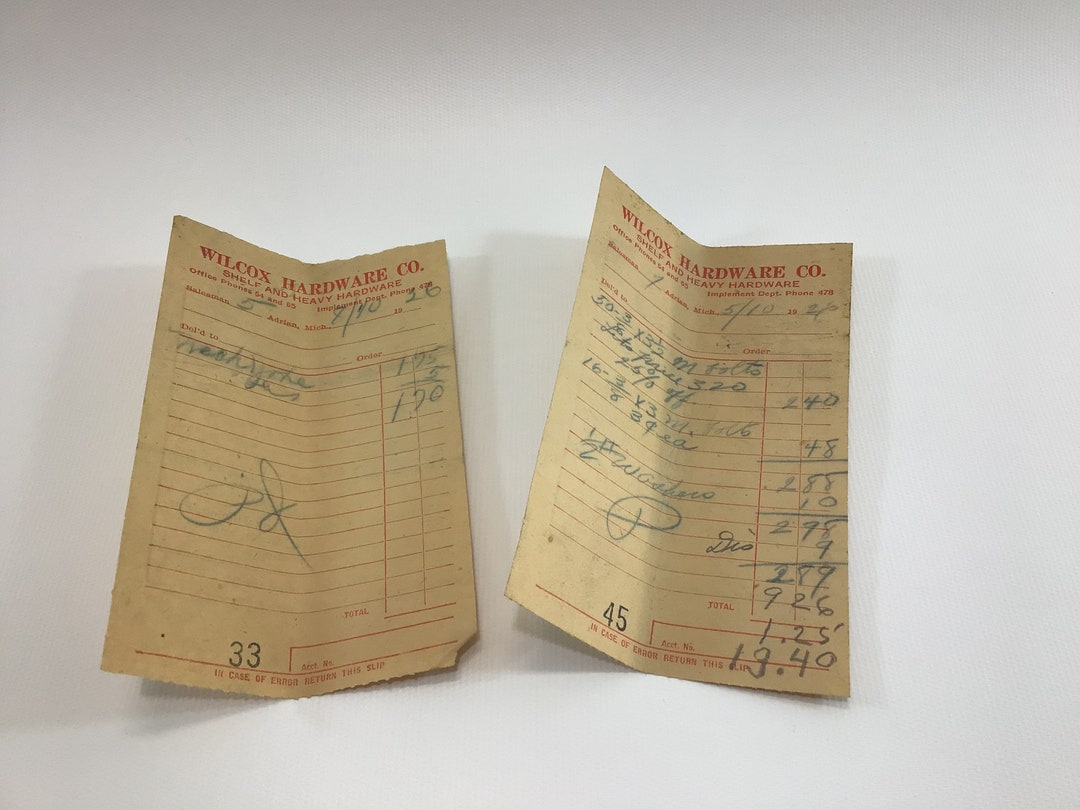 WILCOX HARDWARE CO.
SHELF AND HEAVY HARDWARE
Office Phones 54 and 55 Implement Dept. Phone 478
Salesman 5 Adrian, Mich. 19 26
Del'd to
Order
175
5
170
TOTAL
33
Acct. No.
IN CASE OF ERROR RETURN THIS SLIP
WILCOX HARDWARE CO.
SHELF AND HEAVY HARDWARE
Office Phones 54 and 55 Implement Dept. Phone 478
Salesman 7 Adrian, Mich. 5/10 19 26
Del'd to
Order
50-3/8 X 3 1/2 M bolts
320
25% off 240
16-3/8 X 3 M. bolts
3¢ ea 48
288
1/2 # Washers 10
298
Dis 9
289
926
TOTAL
1.25
13.40
45
Acct. No.
IN CASE OF ERROR RETURN THIS SLIP